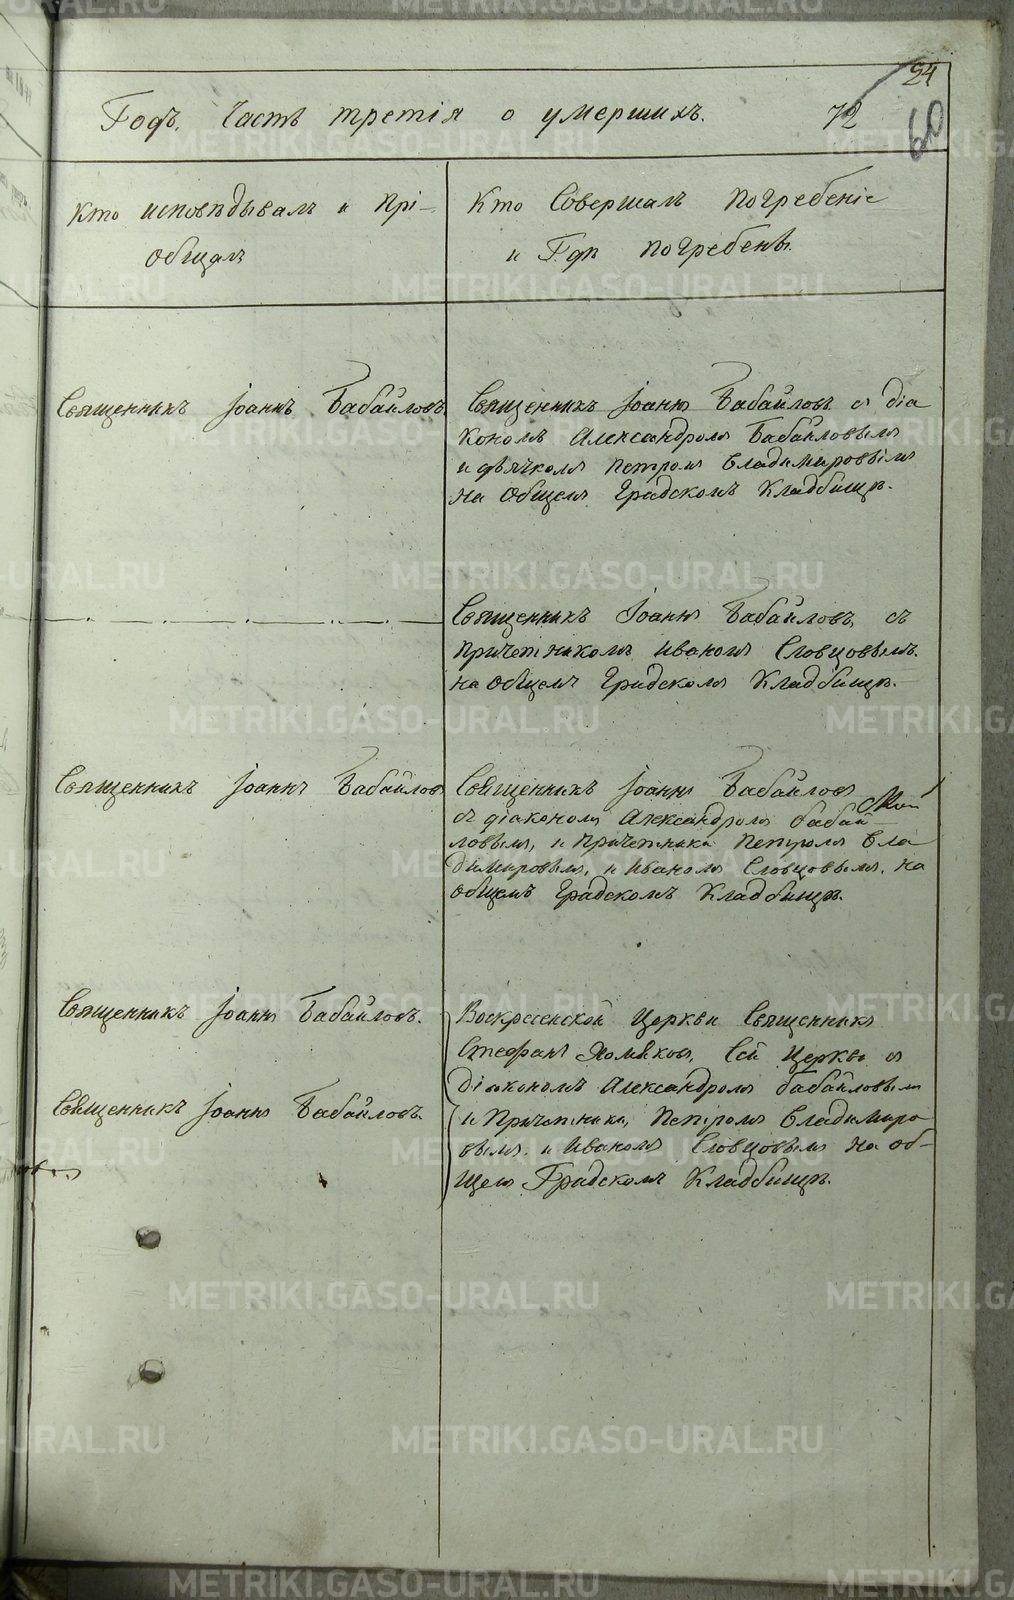 24
Годъ. Часть третія о умершихъ. 72
60
Кто исповѣдывалъ и прі-
общалъ
Кто Совершалъ Погребеніе
и Гдѣ погребенъ.
Священникъ Іоаннъ Бабайловъ
Священникъ Іоаннъ Бабайловъ съ діа
кономъ Александромъ Бабайловымъ
и дьячкомъ Петромъ Владимировымъ
на Общемъ Градскомъ Кладбищѣ.
Священникъ Іоаннъ Бабайловъ, съ
причетникомъ Иваномъ Словцовымъ.
на общемъ Градскомъ Кладбищѣ.
Священникъ Іоаннъ Бабайловъ
Священникъ Іоаннъ Бабайловъ
съ діакономъ Александромъ бабай
ловымъ, и причетники Петромъ Вла
димировымъ, и Иваномъ Словцовымъ, на
общемъ Градскомъ Кладбищѣ.
Священникъ Іоаннъ Бабайловъ.
Воскресенской Церкви Священникъ
Стефанъ Хомяковъ, Сей Церкви съ
Діакономъ Александромъ бабайловымъ
Священникъ Іоаннъ Бабайловъ.
и Причетники, Петромъ Владимиро
вымъ. и Иваномъ Словцовымъ на об-
щемъ Градскомъ Кладбищѣ.
METRIKI.GASO-URAL.RU